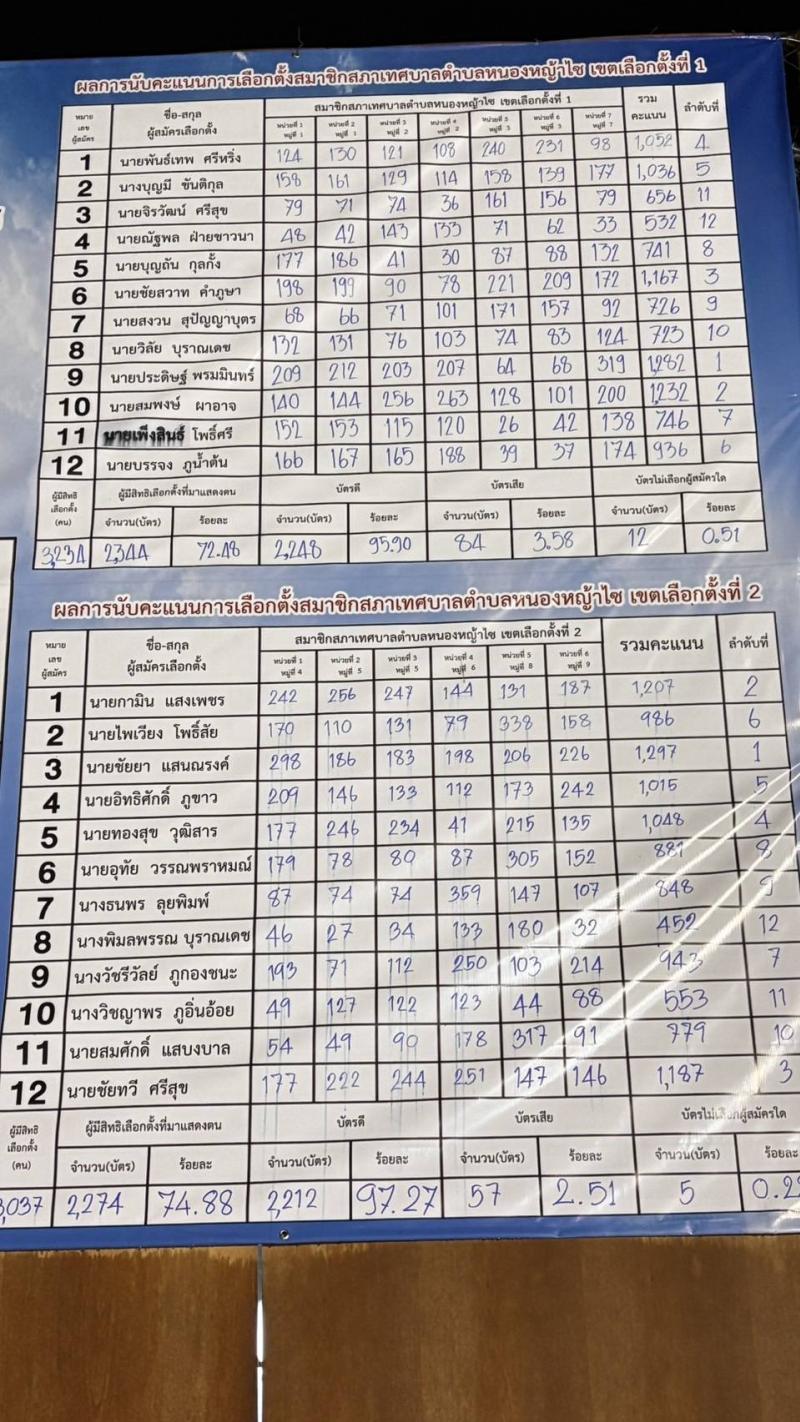 ผลการนับคะแนนการเลือกตั้งสมาชิกสภาเทศบาลตำบลหนองหญ้าไซ เขตเลือกตั้งที่ 1
หมายเลขผู้สมัคร ชื่อ-สกุล ผู้สมัครเลือกตั้ง สมาชิกสภาเทศบาลตำบลหนองหญ้าไซ เขตเลือกตั้งที่ 1 รวมคะแนน ลำดับที่
หน่วยที่ 1 หมู่ที่ 1 หน่วยที่ 2 หมู่ที่ 1 หน่วยที่ 3 หมู่ที่ 2 หน่วยที่ 4 หมู่ที่ 2 หน่วยที่ 5 หมู่ที่ 3 หน่วยที่ 6 หมู่ที่ 3 หน่วยที่ 7 หมู่ที่ 7
1 นายพันธ์เทพ ศรีหริ่ง 124 130 121 108 240 231 98 1,052 4
2 นางบุญมี ขันติกุล 158 161 129 114 158 139 177 1,036 5
3 นายจิรวัฒน์ ศรีสุข 79 71 74 36 161 156 79 656 11
4 นายณัฐพล ฝ่ายชาวนา 48 42 143 133 71 62 33 532 12
5 นายบุญถัน กุลกั้ง 177 186 41 30 87 88 132 741 8
6 นายชัยสวาท คำภูษา 198 199 90 78 221 209 172 1,167 3
7 นายสงวน สุปัญญาบุตร 68 66 71 101 171 157 92 726 9
8 นายวิลัย บุราณเดช 132 131 76 103 74 83 124 723 10
9 นายประดิษฐ์ พรมมินทร์ 209 212 203 207 64 68 319 1,282 1
10 นายสมพงษ์ ผาอาจ 140 144 256 263 128 101 200 1,232 2
11 นายเพ็งสินธ์ โพธิ์ศรี 152 153 115 120 26 42 138 746 7
12 นายบรรจง ภูน้ำต้น 166 167 165 188 39 37 174 936 6
ผู้มีสิทธิเลือกตั้ง (คน) ผู้มีสิทธิเลือกตั้งที่มาแสดงตน บัตรดี บัตรเสีย บัตรไม่เลือกผู้สมัครใด
จำนวน(บัตร) ร้อยละ จำนวน(บัตร) ร้อยละ จำนวน(บัตร) ร้อยละ จำนวน(บัตร) ร้อยละ
3,234 2,344 72.48 2,248 95.90 84 3.58 12 0.51
ผลการนับคะแนนการเลือกตั้งสมาชิกสภาเทศบาลตำบลหนองหญ้าไซ เขตเลือกตั้งที่ 2
หมายเลขผู้สมัคร ชื่อ-สกุล ผู้สมัครเลือกตั้ง สมาชิกสภาเทศบาลตำบลหนองหญ้าไซ เขตเลือกตั้งที่ 2 รวมคะแนน ลำดับที่
หน่วยที่ 1 หมู่ที่ 4 หน่วยที่ 2 หมู่ที่ 5 หน่วยที่ 3 หมู่ที่ 5 หน่วยที่ 4 หมู่ที่ 6 หน่วยที่ 5 หมู่ที่ 8 หน่วยที่ 6 หมู่ที่ 9
1 นายกามิน แสงเพชร 242 256 247 144 131 187 1,207 2
2 นายไพเวียง โพธิ์สัย 170 110 131 79 338 158 986 6
3 นายชัยยา แสนณรงค์ 298 186 183 198 206 226 1,297 1
4 นายอิทธิศักดิ์ ภูขาว 209 146 133 112 173 242 1,015 5
5 นายทองสุข วุฒิสาร 177 246 234 41 215 135 1,048 4
6 นายอุทัย วรรณพราหมณ์ 179 78 80 87 305 152 881 8
7 นางธนพร ลุยพิมพ์ 87 74 74 359 147 107 848 9
8 นางพิมลพรรณ บุราณเดช 46 27 34 133 180 32 452 12
9 นางวัชรีวัลย์ ภูกองชนะ 193 71 112 250 103 214 943 7
10 นางวิชญาพร ภูอิ่นอ้อย 49 127 122 123 44 88 553 11
11 นายสมศักดิ์ แสบงบาล 54 49 90 178 317 91 779 10
12 นายชัยทวี ศรีสุข 177 222 244 251 147 146 1,187 3
ผู้มีสิทธิเลือกตั้ง (คน) ผู้มีสิทธิเลือกตั้งที่มาแสดงตน บัตรดี บัตรเสีย บัตรไม่เลือกผู้สมัครใด
จำนวน(บัตร) ร้อยละ จำนวน(บัตร) ร้อยละ จำนวน(บัตร) ร้อยละ จำนวน(บัตร) ร้อยละ
3,037 2,274 74.88 2,212 97.27 57 2.51 5